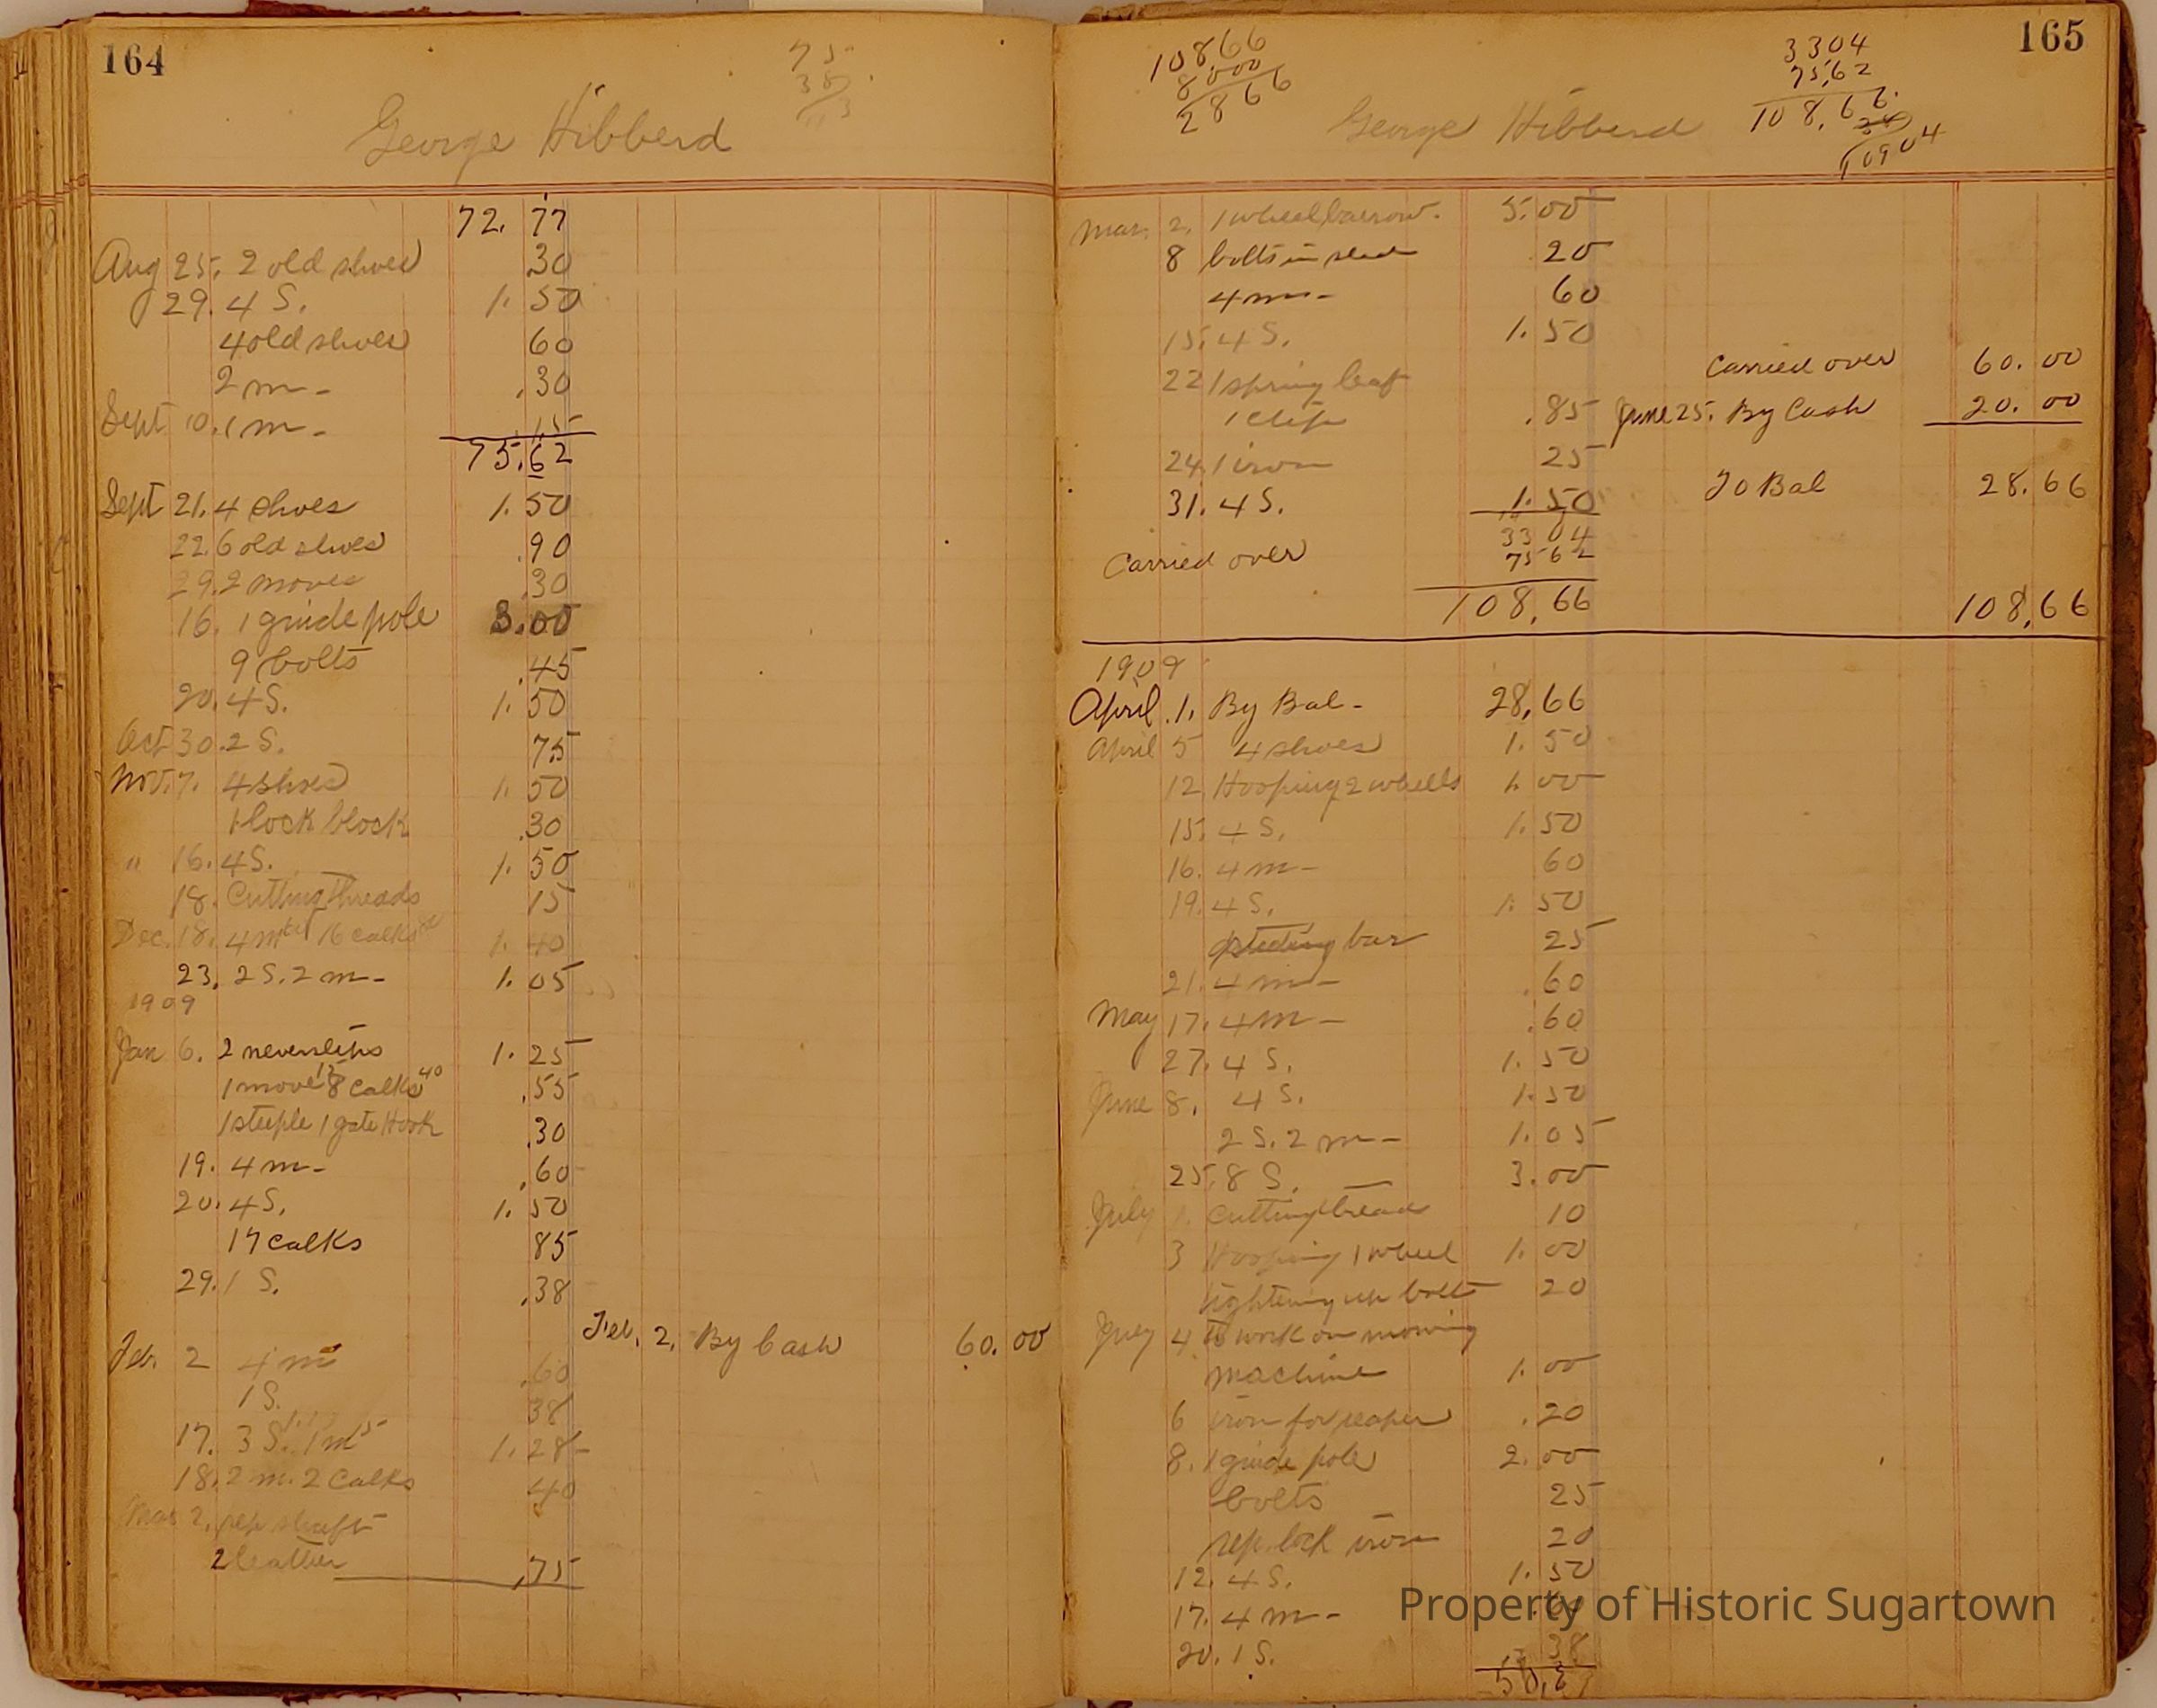 164
75
38
George Hibberd
72. 77
Aug 25. 2 old shoes .30
29. 4 S. 1. 50
4 old shoes 60
2 m - .30
Sept 10. 1 m - .15
75.62
Sept 21. 4 shoes 1. 50
22. 6 old shoes .90
29. 2 moves .30
16. 1 guide pole 3.00
9 bolts .45
20. 4 S. 1. 50
Oct 30. 2 S. 75
Nov. 7. 4 shoes 1. 50
1 lock block .30
" 16. 4 S. 1. 50
18. Cutting threads 15
Dec. 18. 4 m 16 calks 1. 40
23. 2 S. 2 m - 1. 05
1909
Jan 6. 2 neverslips 1. 25
1 move 15 8 calks 40 .55
1 steeple 1 gate Hook .30
19. 4 m - .60
20. 4 S. 1. 50
17 calks 85
29. 1 S. .38
Feb. 2. By Cash 60. 00
Feb. 2 4 m .60
1 S. 38
17. 3 S. 1 m 15 1. 28
18. 2 m. 2 Calks 40
Mar 2. rep shaft
2 leather .75
165
108.66
8000
2866
3304
75.62
108.66
109 04
George Hibberd
Mar. 2. 1 wheelbarrow. 5. 00
8 bolts in 20
4 m - 60
15. 4 S. 1. 50
22 1 spring leaf
1 clip .85
24. 1 iron 25
31. 4 S. 1. 50
Carried over 60. 00
June 25. By Cash 20. 00
To Bal 28. 66
33 04
Carried over 75 62
108,66 108,66
1909
April. 1. By Bal - 28,66
April 5 4 shoes 1. 50
12 Hooping 2 wheels 1. 00
15. 4 S. 1. 50
16. 4 m - 60
19. 4 S. 1. 50
bar 25
21. 4 m - .60
May 17. 4 m - .60
27. 4 S. 1. 50
June 8. 4 S. 1. 50
2 S. 2 m - 1. 05
25. 8 S. 3. 00
July 1. Cutting thread 10
3 Hooping 1 wheel 1. 00
tightening up bolt 20
July 4 To work on mowing
machine 1. 00
6 iron for reaper .20
8. 1 guide pole 2. 00
bolts 25
rep. lock iron 20
12. 4 S. 1. 50
17. 4 m - .60
20. 1 S. 38
Property of Historic Sugartown